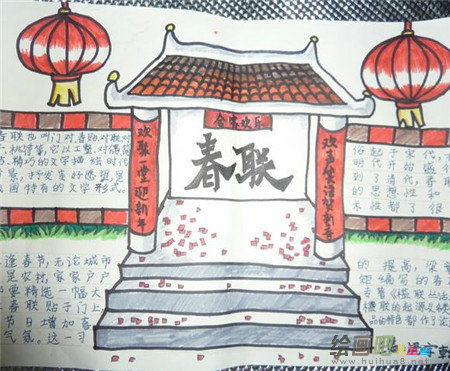 合家欢乐
欢聚一堂迎新年
春联
欢声笑语贺新春
春联也叫门对、春贴、对联、对
、桃符等,它以工整、对偶、简
、精巧的文字描绘时代
景,抒发美好愿望,是
国特有的文学形式。
逢春节,无论城市
是农村,家家户户
要精选一幅大
春联贴于门上
节日增加喜
气氛。这一习
俗起于宋代,
明代开始盛行
到了清代,春联
的思想性和
术性都了很
的提高,梁章
钜编写的春联
专著《楹联丛话》
楹联的起源及各类
品的特色都作了论
www.huihua8.net